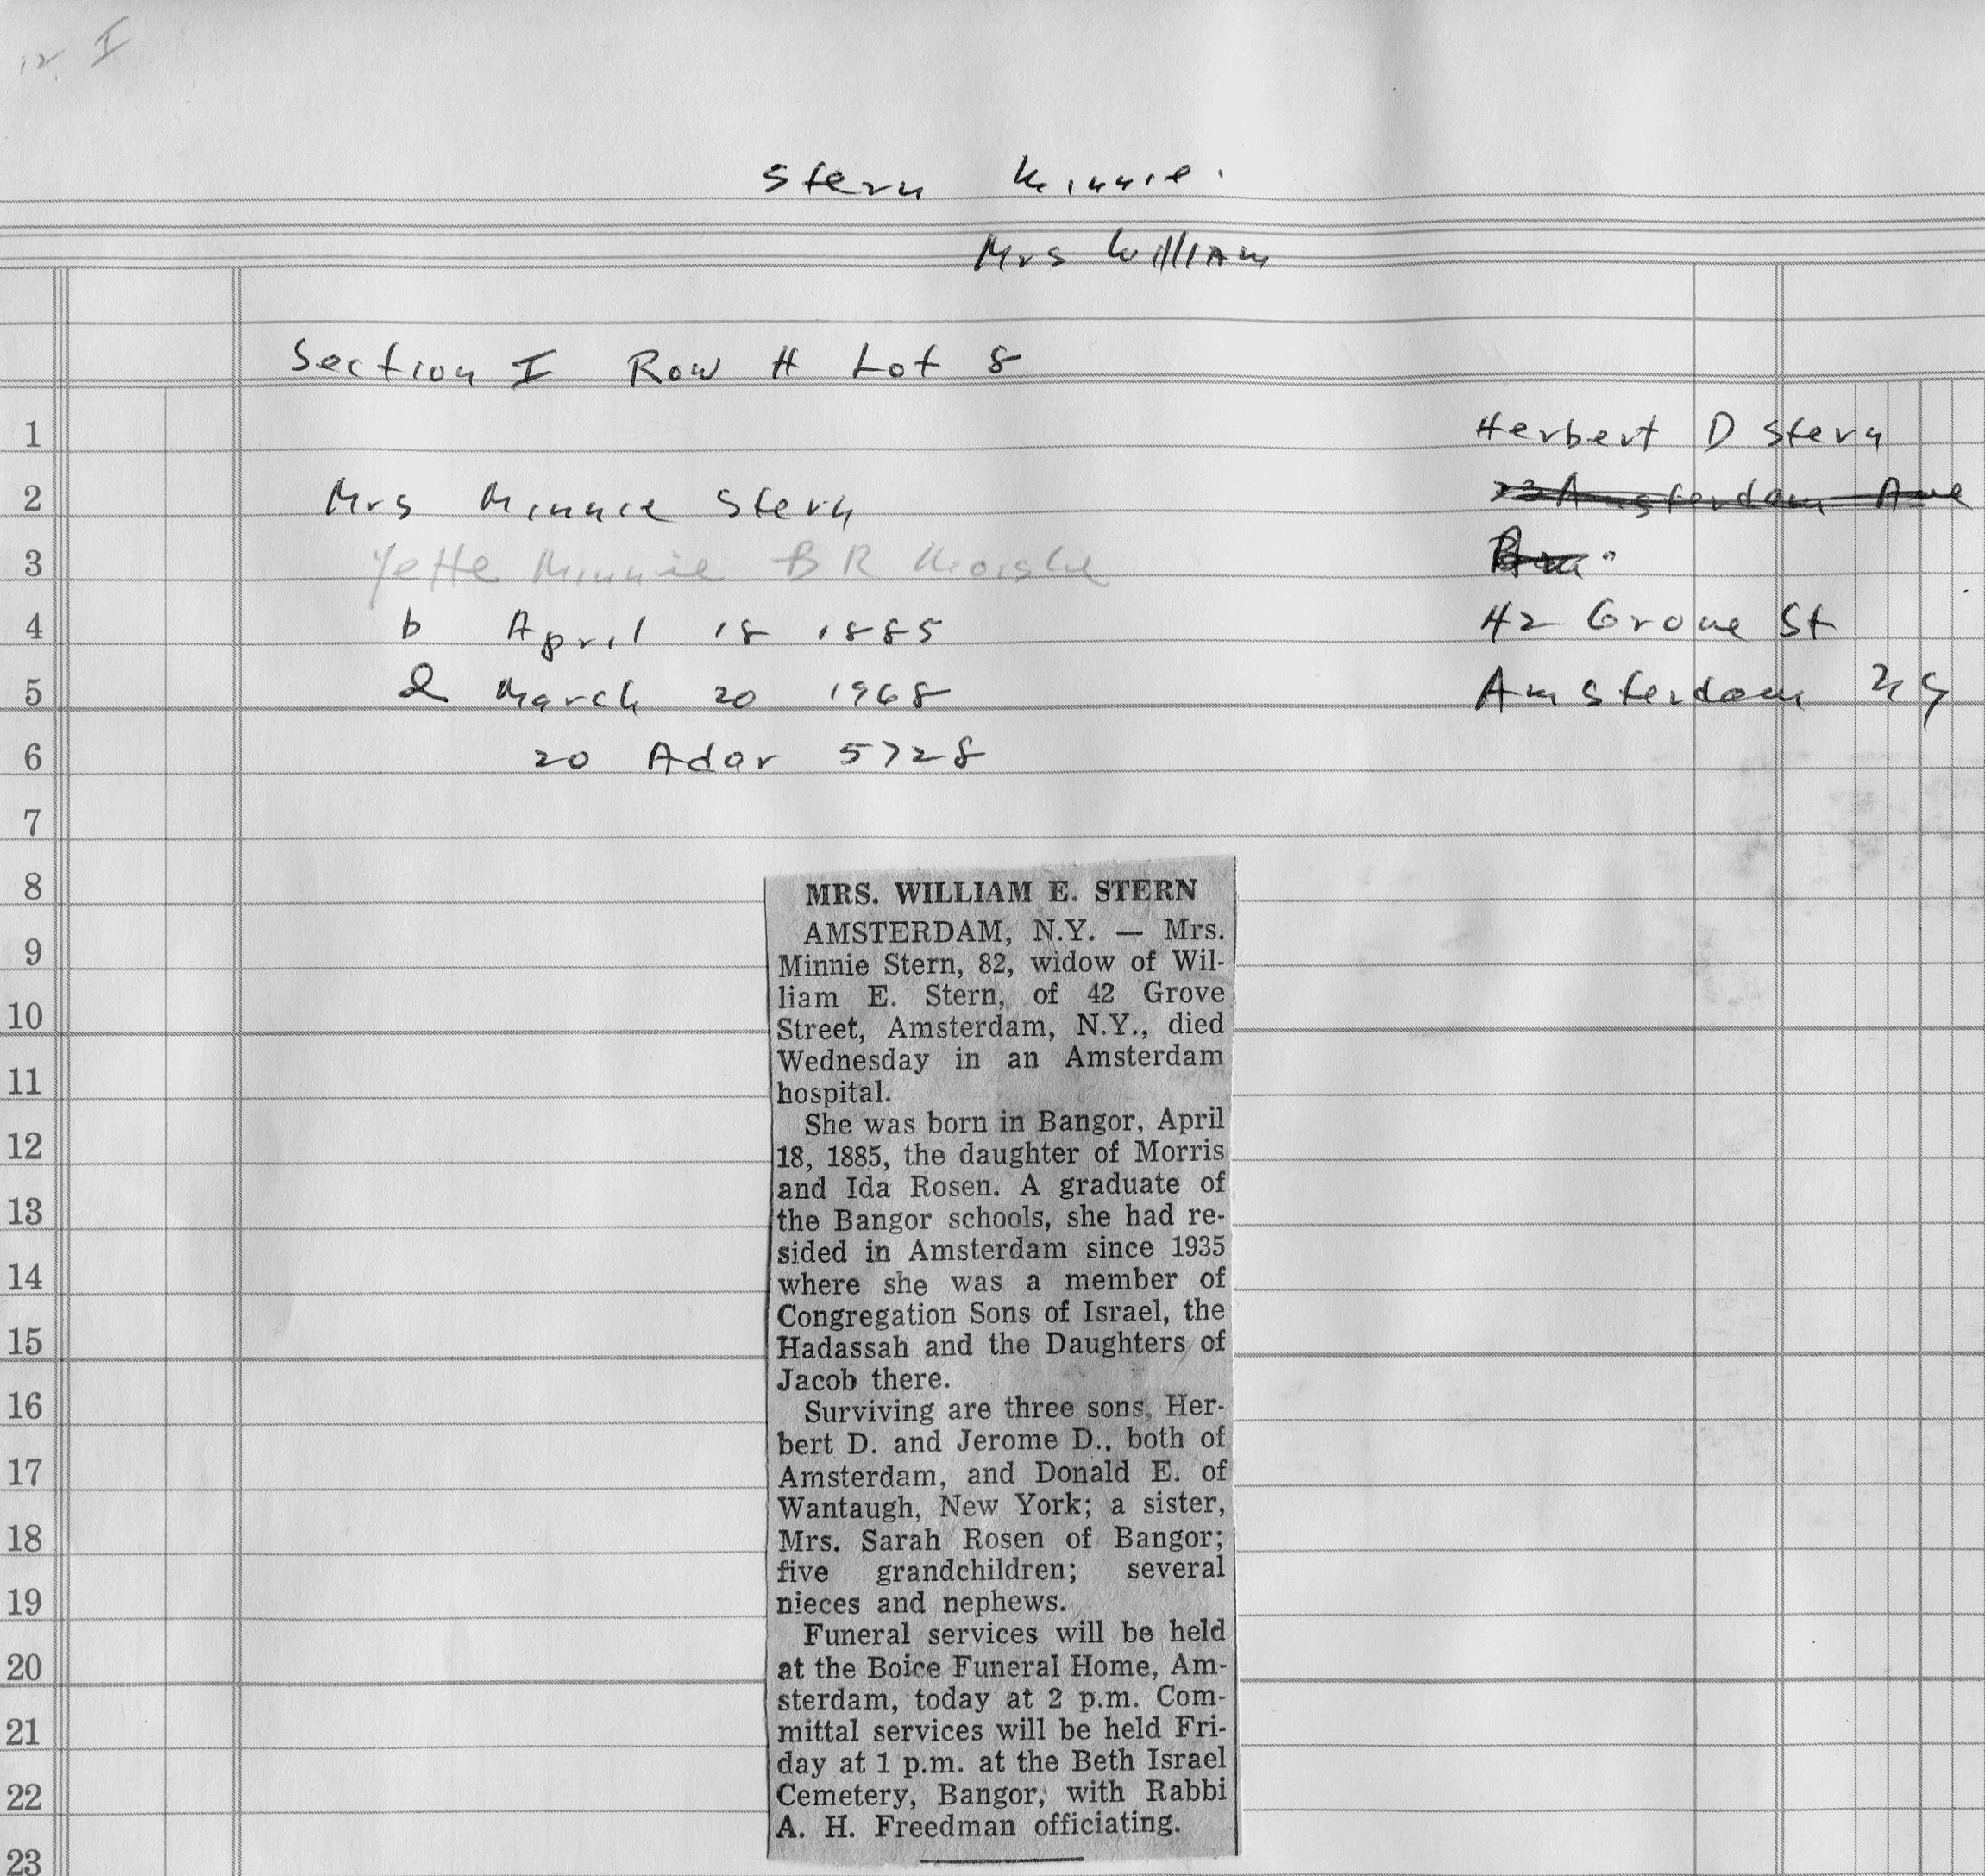 I
Stern Minnie.
Mrs William
Section I Row H Lot 8
1
Herbert D Stern
2
Mrs Minnie Stern
23 Amsterdam Ave
3
Yette Minnie B R Moishe
4
b April 18 1885
42 Grove St
5
d March 20 1968
Amsterdam NY
6
20 Adar 5728
7
8
9
10
11
12
13
14
15
16
17
18
19
20
21
22
23
MRS. WILLIAM E. STERN
AMSTERDAM, N.Y. — Mrs.
Minnie Stern, 82, widow of Wil-
liam E. Stern, of 42 Grove
Street, Amsterdam, N.Y., died
Wednesday in an Amsterdam
hospital.
She was born in Bangor, April
18, 1885, the daughter of Morris
and Ida Rosen. A graduate of
the Bangor schools, she had re-
sided in Amsterdam since 1935
where she was a member of
Congregation Sons of Israel, the
Hadassah and the Daughters of
Jacob there.
Surviving are three sons, Her-
bert D. and Jerome D., both of
Amsterdam, and Donald E. of
Wantaugh, New York; a sister,
Mrs. Sarah Rosen of Bangor;
five grandchildren; several
nieces and nephews.
Funeral services will be held
at the Boice Funeral Home, Am-
sterdam, today at 2 p.m. Com-
mittal services will be held Fri-
day at 1 p.m. at the Beth Israel
Cemetery, Bangor, with Rabbi
A. H. Freedman officiating.